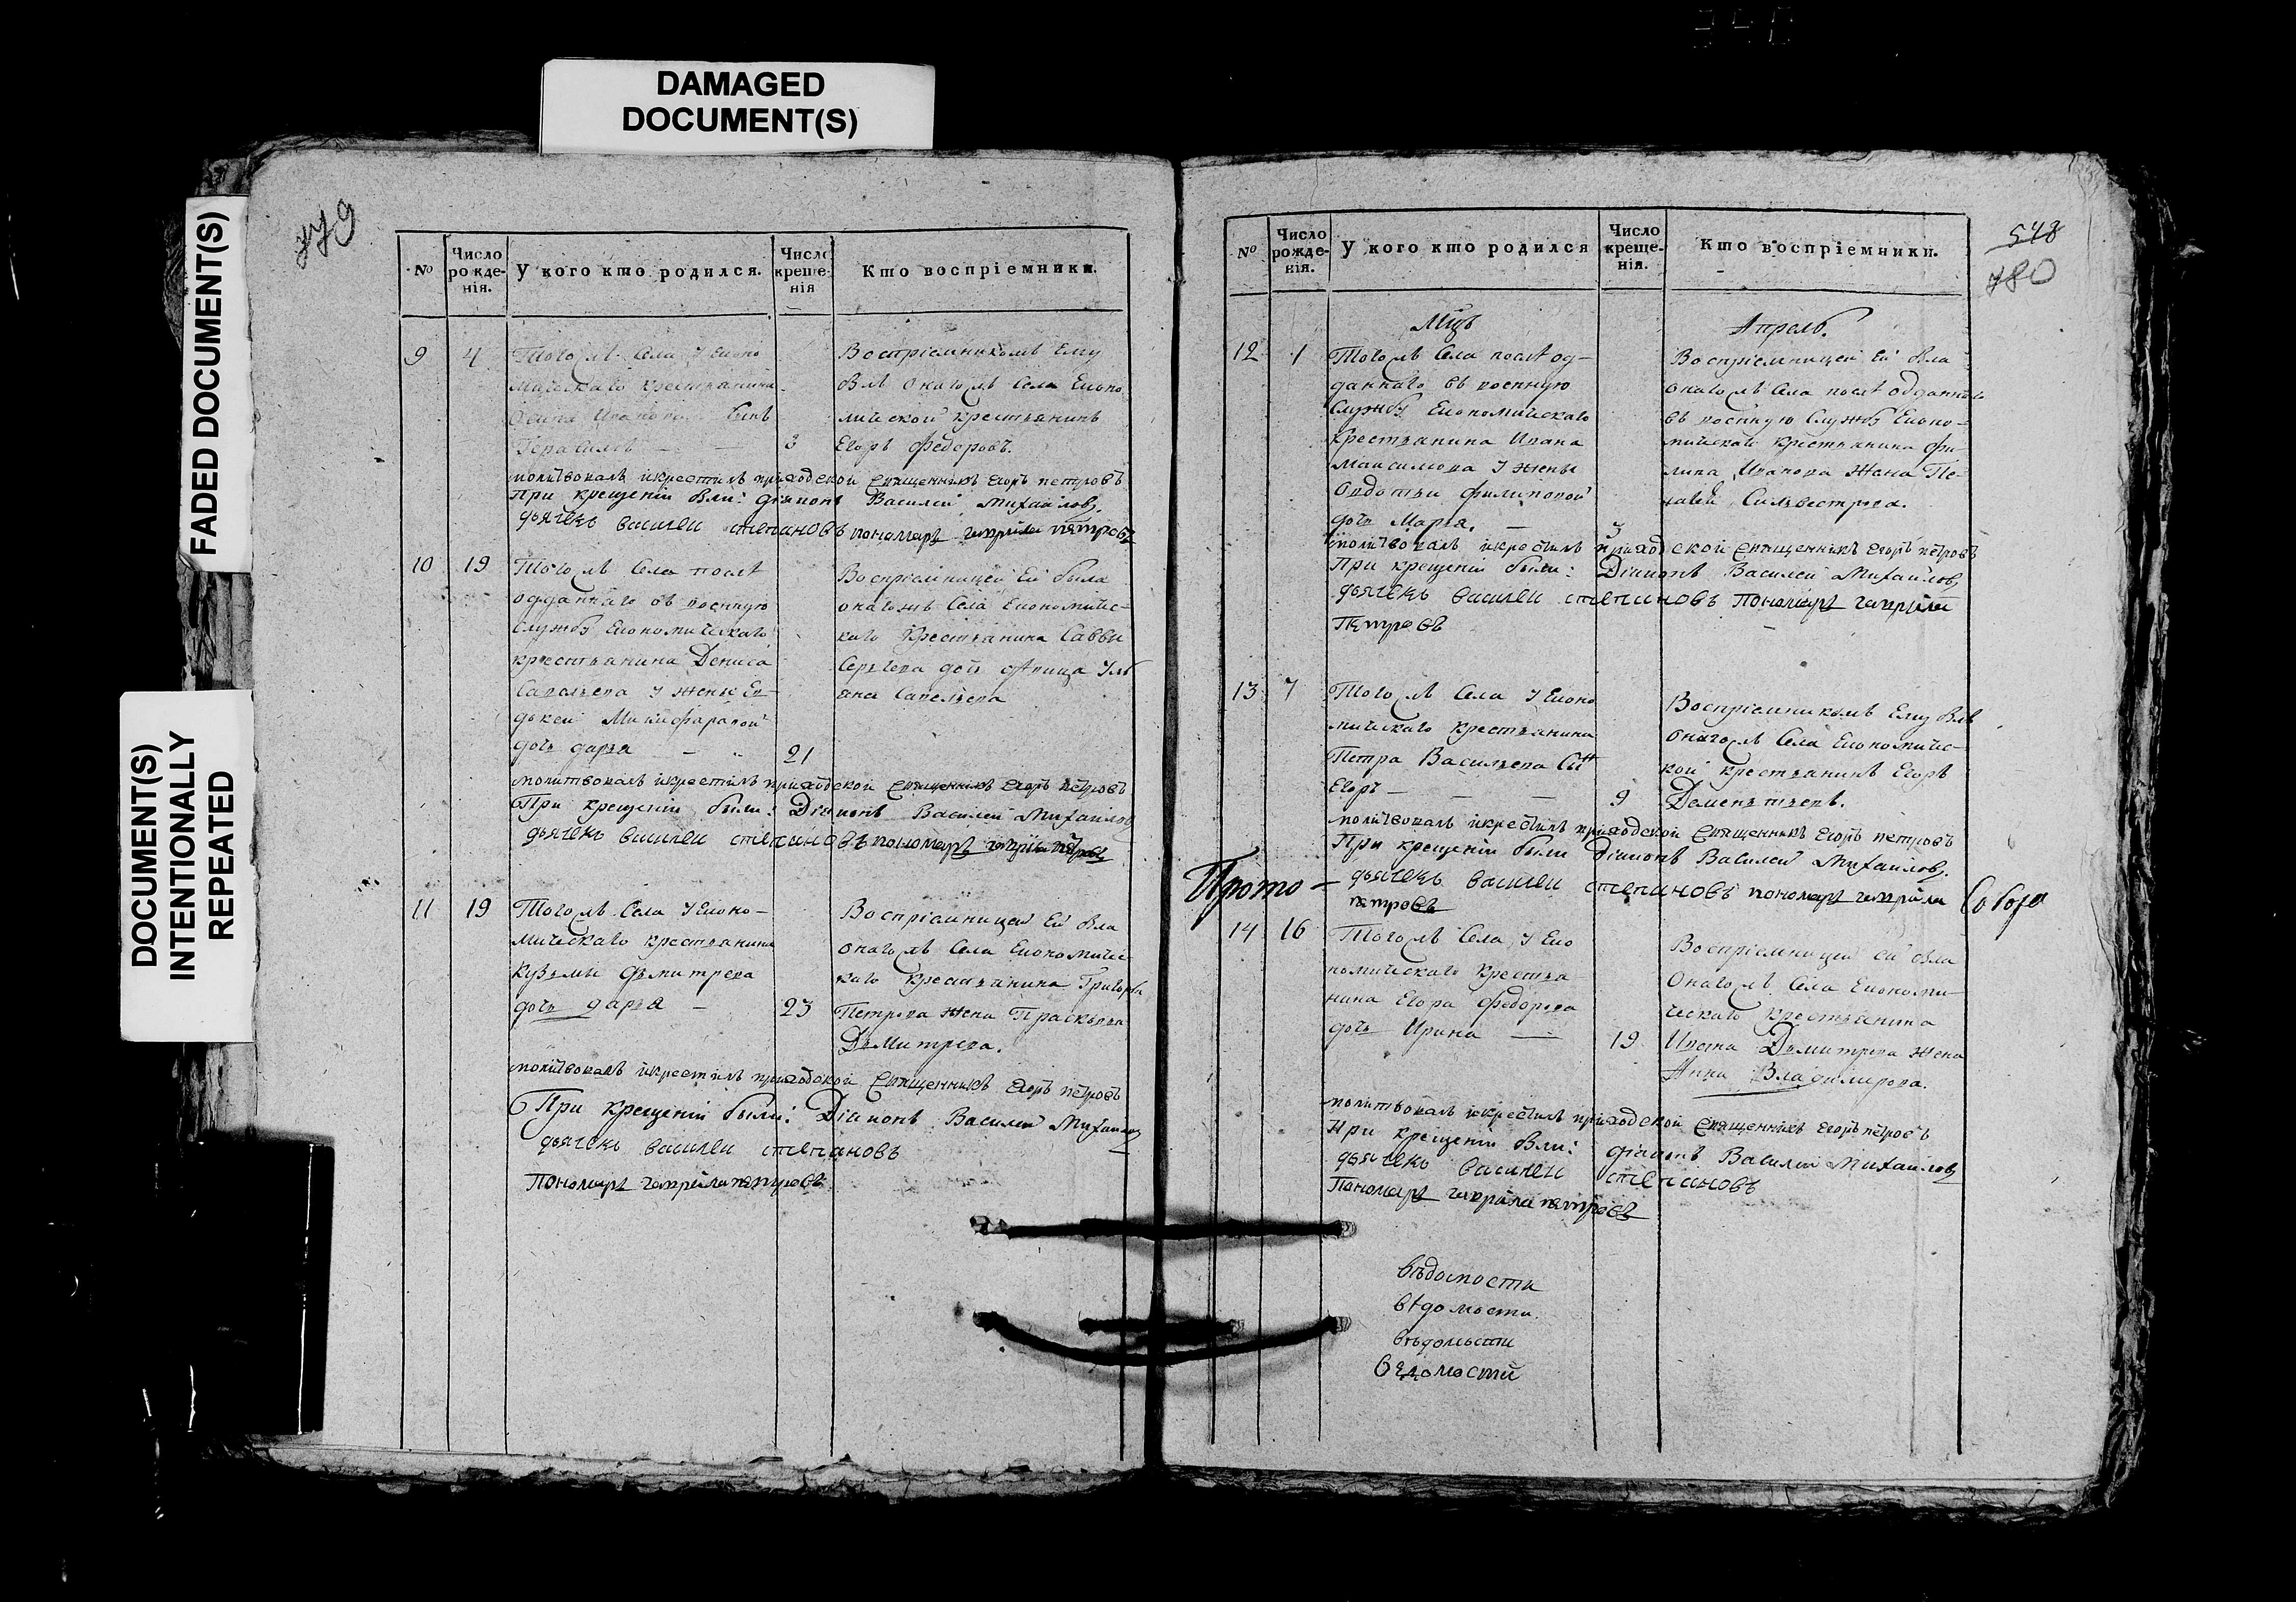 DAMAGED
DOCUMENT(S)
FADED DOCUMENT(S)
DOCUMENT(S)
INTENTIONALLY
REPEATED
779
№
Число рожденія.
У кого кто родился.
Число крещенія
Кто воспріемники.
9 4
Того жъ Села у Еконо
мическаго крестьянина
Осипа Иванова сынъ
Герасимъ — — 3
Воспріемникомъ Ему
былъ онагожъ Села Еконо
мической крестьянинъ
Егоръ Федоровъ.
молитвовалъ икрестилъ приходской священникъ Егоръ петровъ
При крещеніи были: діаконъ Василей Михайловъ.
дьячекъ василеи степановъ пономарь гаврила петровъ
10 19
Того жъ Села послѣ
отданнаго въ военную
службу Економическаго
крестьянина Дениса
Савельева у жены Ев-
докеи Никифаравой
дочь дарья — 21
Воспріемницей Ей была
онагожъ Села Економичес-
каго крестьянина Саввы
Сергѣева дочь девица Уль
яна Савельева
молитвовалъ икрестилъ приходской священникъ Егоръ петровъ
При крещеніи были: Діаконъ Василей Михайловъ
дьячекъ василеи степановъ пономарь гаврила петровъ
11 19
Того жъ Села у Еконо-
мическаго крестьянина
Кузьмы дьмитрева
дочь дарья — 23
Воспріемницей Ей была
онаго жъ Села Економичес-
каго крестьянина Григорья
Петрова жена Прасковья
Дьмитрева.
молитвовалъ икрестилъ приходской священникъ Егоръ петровъ
При крещеніи были: Діаконъ Василей Михайловъ
дьячекъ василеи степановъ
Пономарь гаврила петровъ
548
780
№
Число рожденія.
У кого кто родился
Число крещенія.
Кто воспріемники.
Мцъ Апрель.
12 1
Того жъ Села послѣ от-
даннаго въ военную
Службу Економическаго
крестьянина Ивана
Максимова у жены
Овдотьи филиповой
дочь Марья. — 3
Воспріемницей Ей была
онагожъ Села послѣ отданнаго
въ военную Службу Еконо-
мическаго крестьянина Фи-
липа Иванова жена Пе-
лагея Сильвестрова.
молитвовалъ икрестилъ приходской священникъ Егоръ петровъ
При крещеніи были: Діаконъ Василей Михайловъ
дьячекъ василеи степановъ пономарь гаврила
Петровъ
13 7
Того жъ Села у Еконо
мическаго крестьянина
Петра Васильева Сынъ
Егоръ — — — 9
Воспріемникомъ Ему былъ
онаго жъ Села Економичес-
кой крестьянинъ Егоръ
Даментьевъ.
молитвовалъ икрестилъ приходской священникъ Егоръ петровъ
При крещеніи были Діаконъ Василей Михайловъ.
дьячекъ василеи степановъ пономарь гаврила
петровъ
Прото —
14 16
Того жъ Села у Еко
номическаго крестья
нина Егора Федорова
дочь Ирина — 19
Воспріемницей ей была
Онаго жъ Села Економи-
ческаго крестьянина
Ивана Дьмитрева жена
Анна Владимирова.
молитвовалъ икрестилъ приходской священникъ Егоръ петровъ
При крещеніи были: діаконъ Василей Михайловъ
дьячекъ василеи степановъ
Пономарь гаврила петровъ
вѣдомости
вѣдомости
вѣдомости
Ведомостй